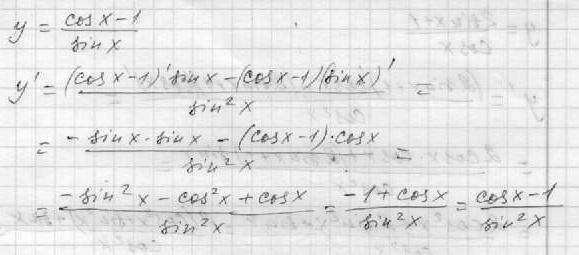 y = (cosx-1)/(sinx)
y' = ((cosx-1)'sinx-(cosx-1)(sinx)')/(sin²x) =
= (-sinx·sinx - (cosx-1)·cosx)/(sin²x) =
= (-sin²x - cos²x + cosx)/(sin²x) = (-1+cosx)/(sin²x) = (cosx-1)/(sin²x)